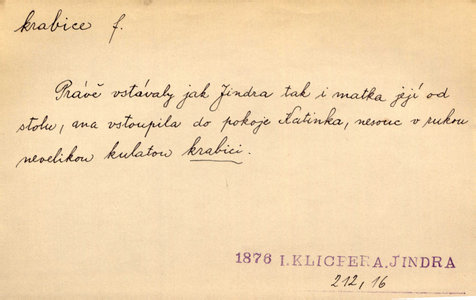 krabice f.
Právě vstávaly jak Jindra tak i matka její od
stolu, ana vstoupila do pokoje Katinka, nesouc v rukou
nevelikou kulatou krabici.
1876 I.KLICPERA.JINDRA
212, 16